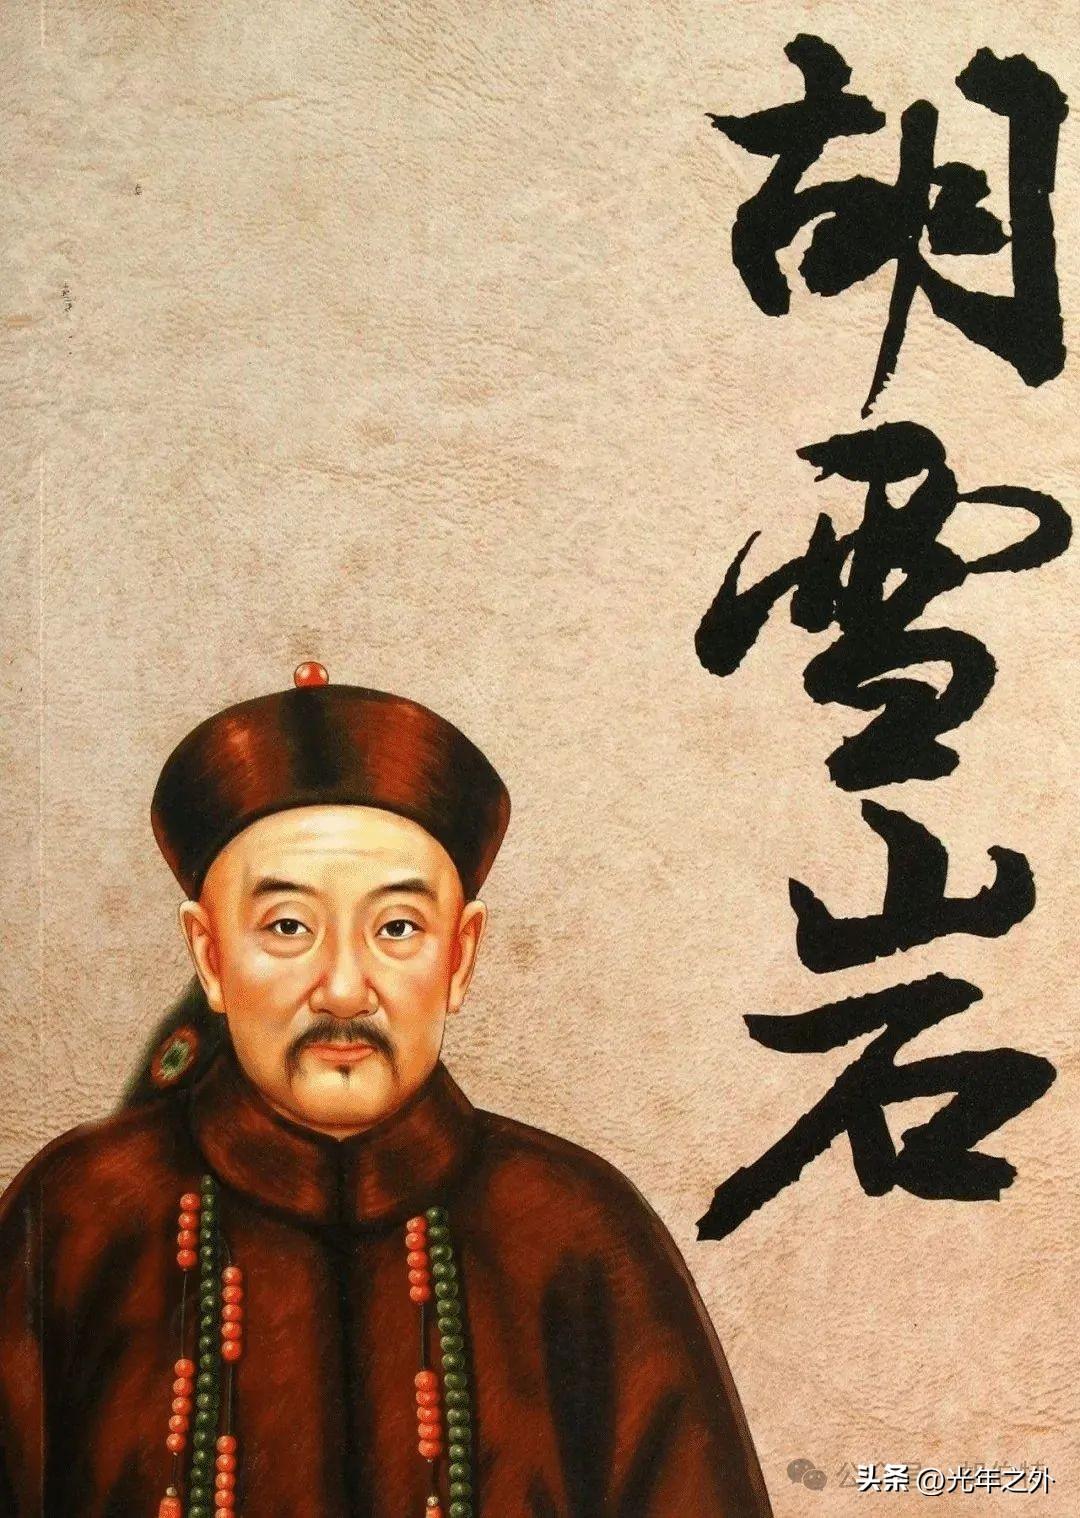 胡雪岩
头条 @光年之外